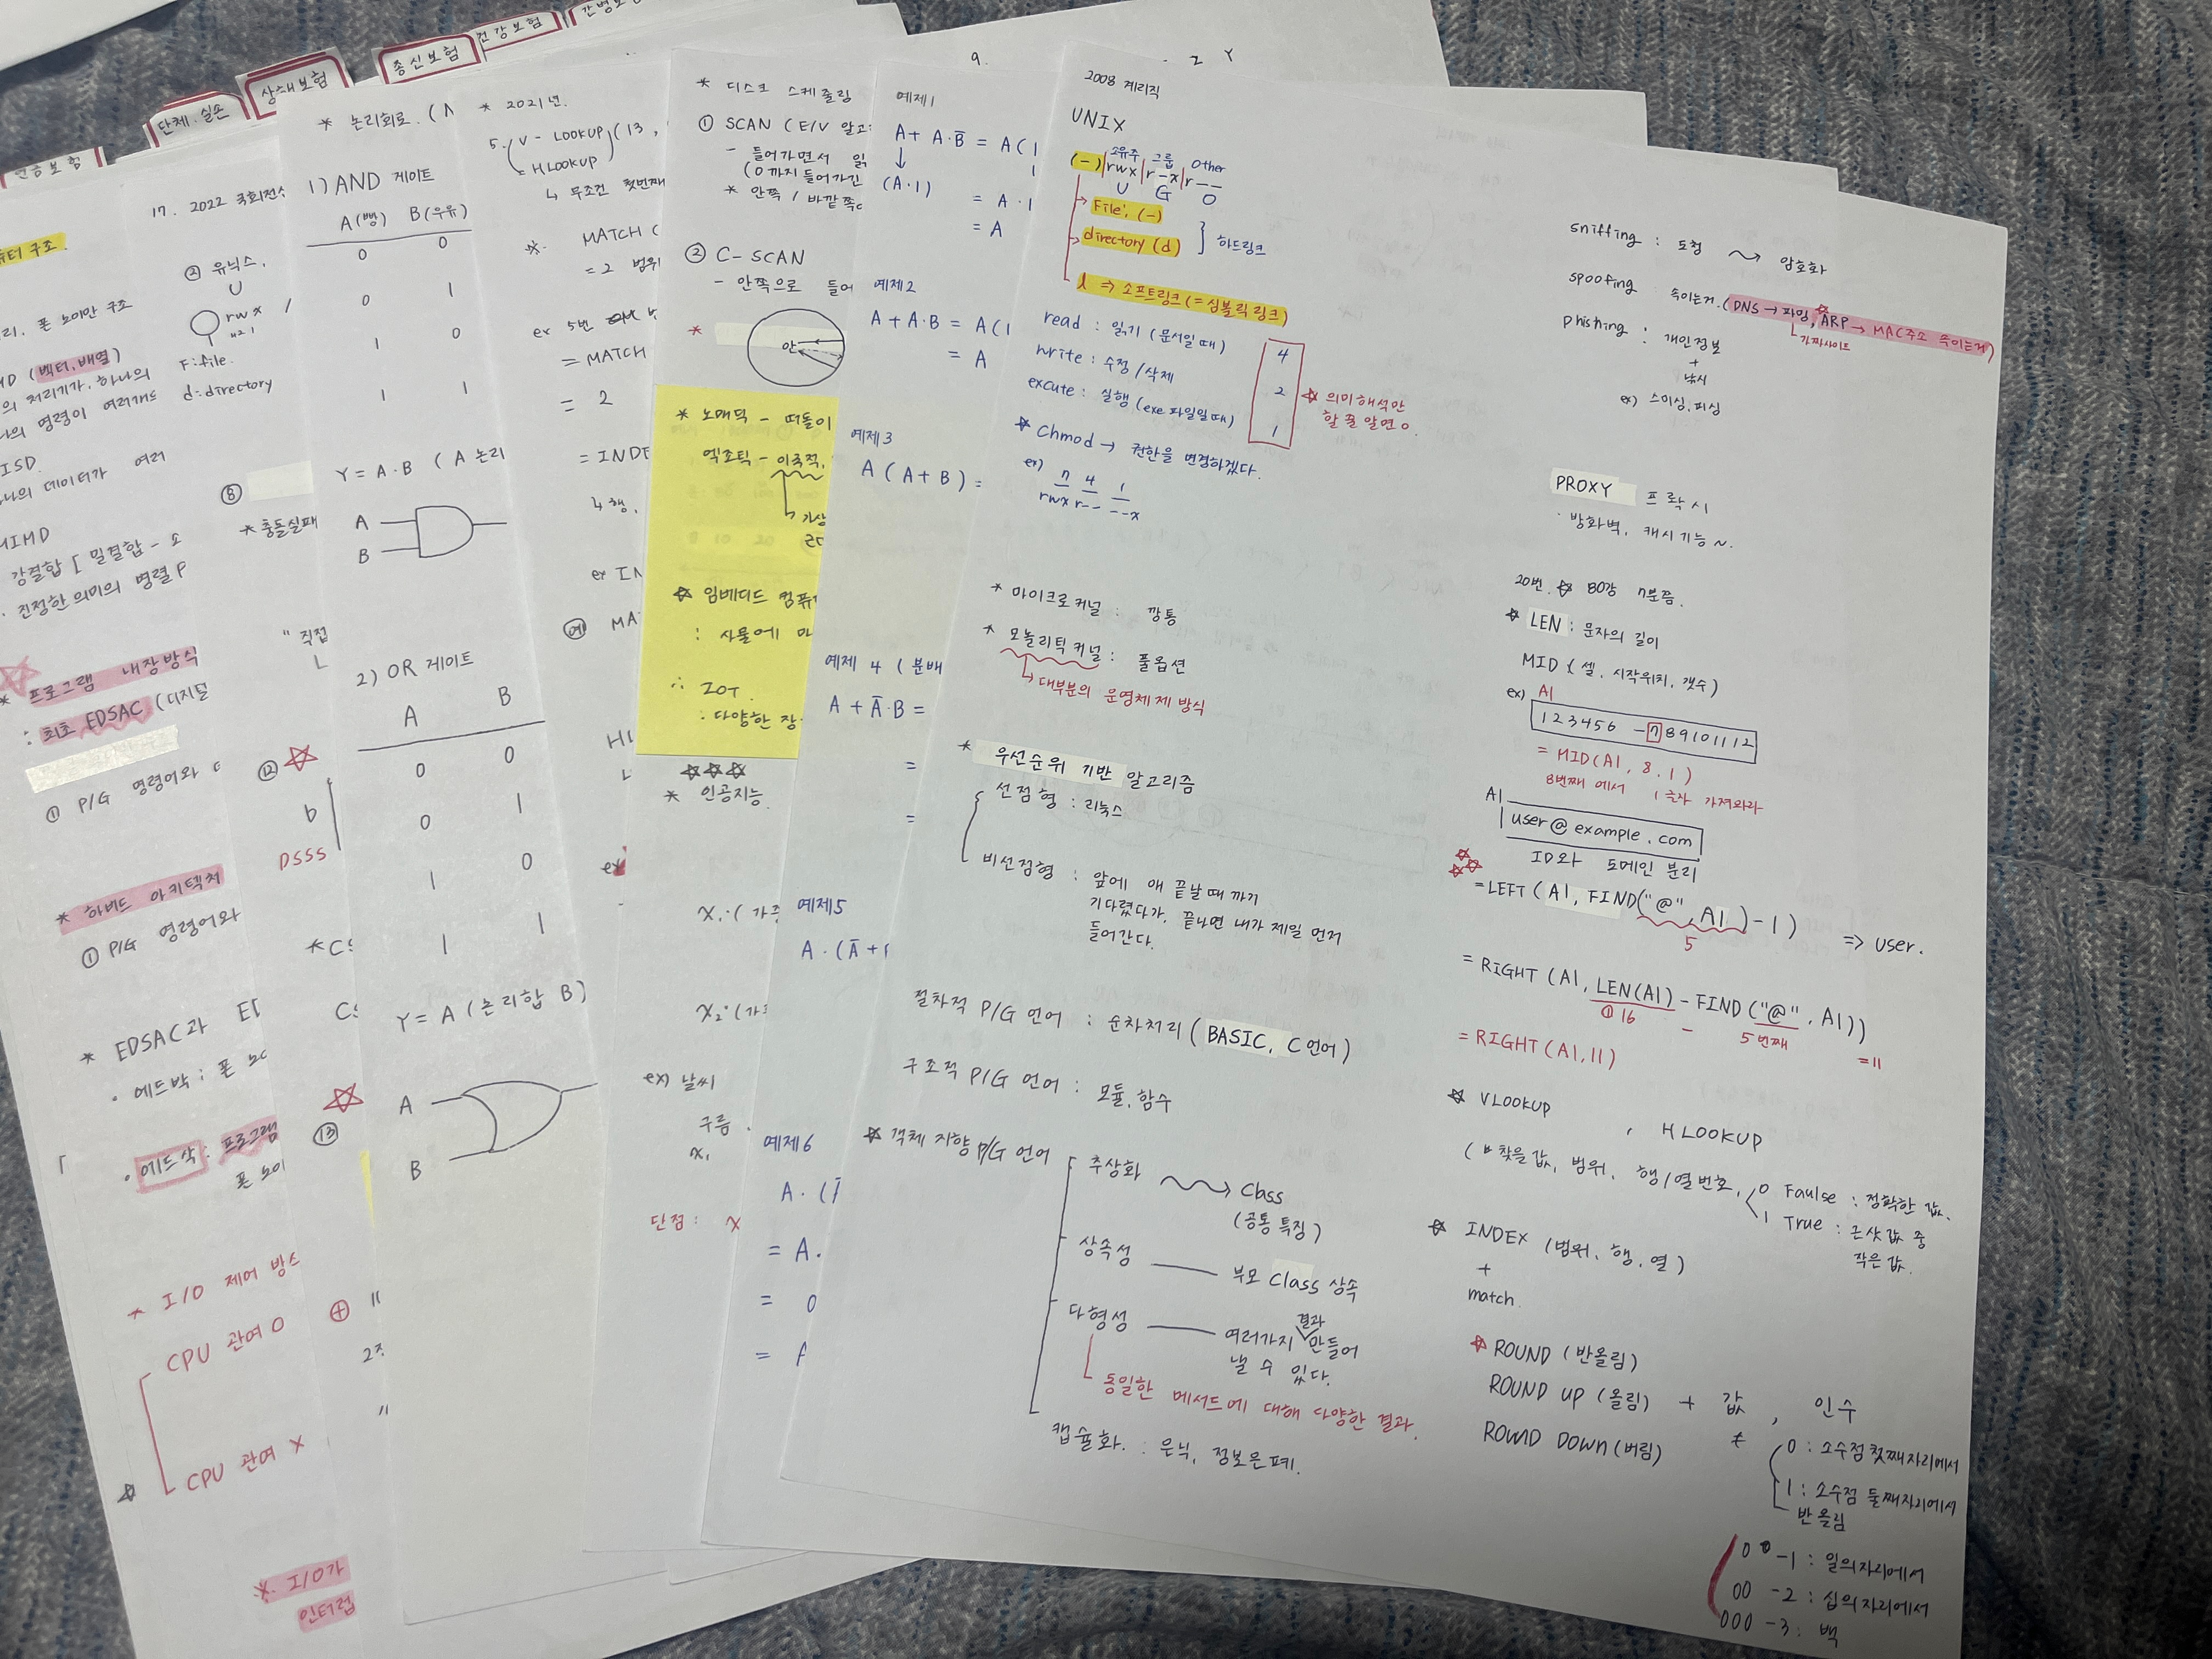 연금보험
단체.실손
상해보험
종신보험
건강보험
간병보
구조.
리. 폰 노이만 구조
(벡터, 배열)
의 처리기가, 하나의
명령이 여러개
ISD.
데이터가 여러
MIMD
강결합 [ 밀결합 -
진정한 의미의 병렬 P
* 프로그램 내장방식
: 최초 EDSAC (디지털
① P/G 명령어와
* 하버드 아키텍처
① P/G 명령어와
* EDSAC과 ED
· 에드박 : 폰 노
· 에드삭 : 프로그램
폰 노이
* I/O 제어 방식
CPU 관여 O
CPU 관여 X
※. I/O가
인터럽
17. 2022 국회전산
② 유닉스.
U
rwx /
421
F:file.
d:directory
⑧
* 충돌실패
" 직접
⑫
b
DSSS
*CS
CS
⑬
* 논리회로. (A
1) AND 게이트
A(빵) B(우유)
0 0
0 1
1 0
1 1
Y = A·B ( A 논리
A
B
2) OR 게이트
A B
0 0
0 1
1 0
1 1
Y = A (논리합 B)
A
B
* 2021년.
5. V - LOOKUP (13,
HLOOKUP
↳ 무조건 첫번째
※. MATCH (
= 2 범위
ex 5번
= MATCH
= 2
= INDE
↳ 행,
ex IN
MA
* 디스크 스케줄링
① SCAN (E/V 알고
- 들어가면서 읽
(0까지 들어가긴
* 안쪽 / 바깥쪽
② C- SCAN
- 안쪽으로 들어
*
안
* 노매딕 - 떠돌이
엑조틱 - 이국적,
가상
☆ 임베디드 컴퓨
: 사물에
∴ IOT.
: 다양한 장
☆☆☆
* 인공지능.
ex) 날씨
구름.
x₁
단점: x
9.
Z Y
예제1
A + A·B̄ = A(1
↓
(A·1)
= A·1
= A
예제2
A + A·B = A(1
= A
예제3
A (A+B) =
예제 4 (분배
A + Ā·B =
=
=
예제5
A·(Ā+
예제6
A·(
= A.
= 0
=
2008 계리직
UNIX
소유주 그룹 Other
(-) | rwx | r-x | r--
U G O
File, (-)
directory (d) } 하드링크
l ⇒ 소프트링크 (= 심볼릭 링크)
read : 읽기 (문서일 때) 4
write : 수정 / 삭제 2
excute : 실행 (exe 파일일때) 1
☆ 의미 해석만
할 줄 알면 o.
☆ Chmod → 권한을 변경하겠다.
ex) 7 4 1
rwx r-- --x
* 마이크로커널 : 깡통
* 모놀리틱커널 : 풀옵션
↳ 대부분의 운영체제 방식
* 우선순위 기반 알고리즘
선점형 : 리눅스
비선점형 : 앞에 애 끝날 때 까지
기다렸다가, 끝나면 내가 제일 먼저
들어간다.
절차적 P/G 언어 : 순차처리 (BASIC, C언어)
구조적 P/G 언어 : 모듈, 함수
☆ 객체 지향 P/G 언어
추상화 → Class
(공통 특징)
상속성 — 부모 Class 상속
다형성 — 여러가지 결과 만들어
낼 수 있다.
동일한 메서드에 대해 다양한 결과.
캡슐화. : 은닉, 정보은폐.
sniffing : 도청 → 암호화
spoofing 속이는거. (DNS → 파밍, ARP → MAC주소 속이는거)
가짜사이트
phishing : 개인정보
+
낚시
ex) 스미싱, 피싱
PROXY 프락시
· 방화벽, 캐시기능 ~.
20번. ☆ 80강 7분쯤.
☆ LEN : 문자의 길이
MID ( 셀, 시작위치, 갯수 )
ex) A1
123456 -789101112
= MID(A1, 8. 1)
8번째 에서 1글자 가져와라
A1
user@example.com
ID와 도메인 분리
=LEFT (A1, FIND("@", A1) -1) ⇒ user.
5
= RIGHT (A1, LEN(A1) - FIND("@", A1))
① 16 - 5번째 =11
= RIGHT (A1, 11)
☆ VLOOKUP , HLOOKUP
( 찾을값, 범위, 행/열번호,
0 Faulse : 정확한 값.
1 True : 근삿값 중
작은값.
☆ INDEX (범위, 행, 열)
+
match.
☆ ROUND (반올림)
ROUND UP (올림) + 값, 인수
ROUND DOWN (버림)
0 : 소수점 첫째자리에서
1 : 소수점 둘째자리에서
반올림
0 -1 : 일의자리에서
00 -2 : 십의자리에서
000 -3 : 백